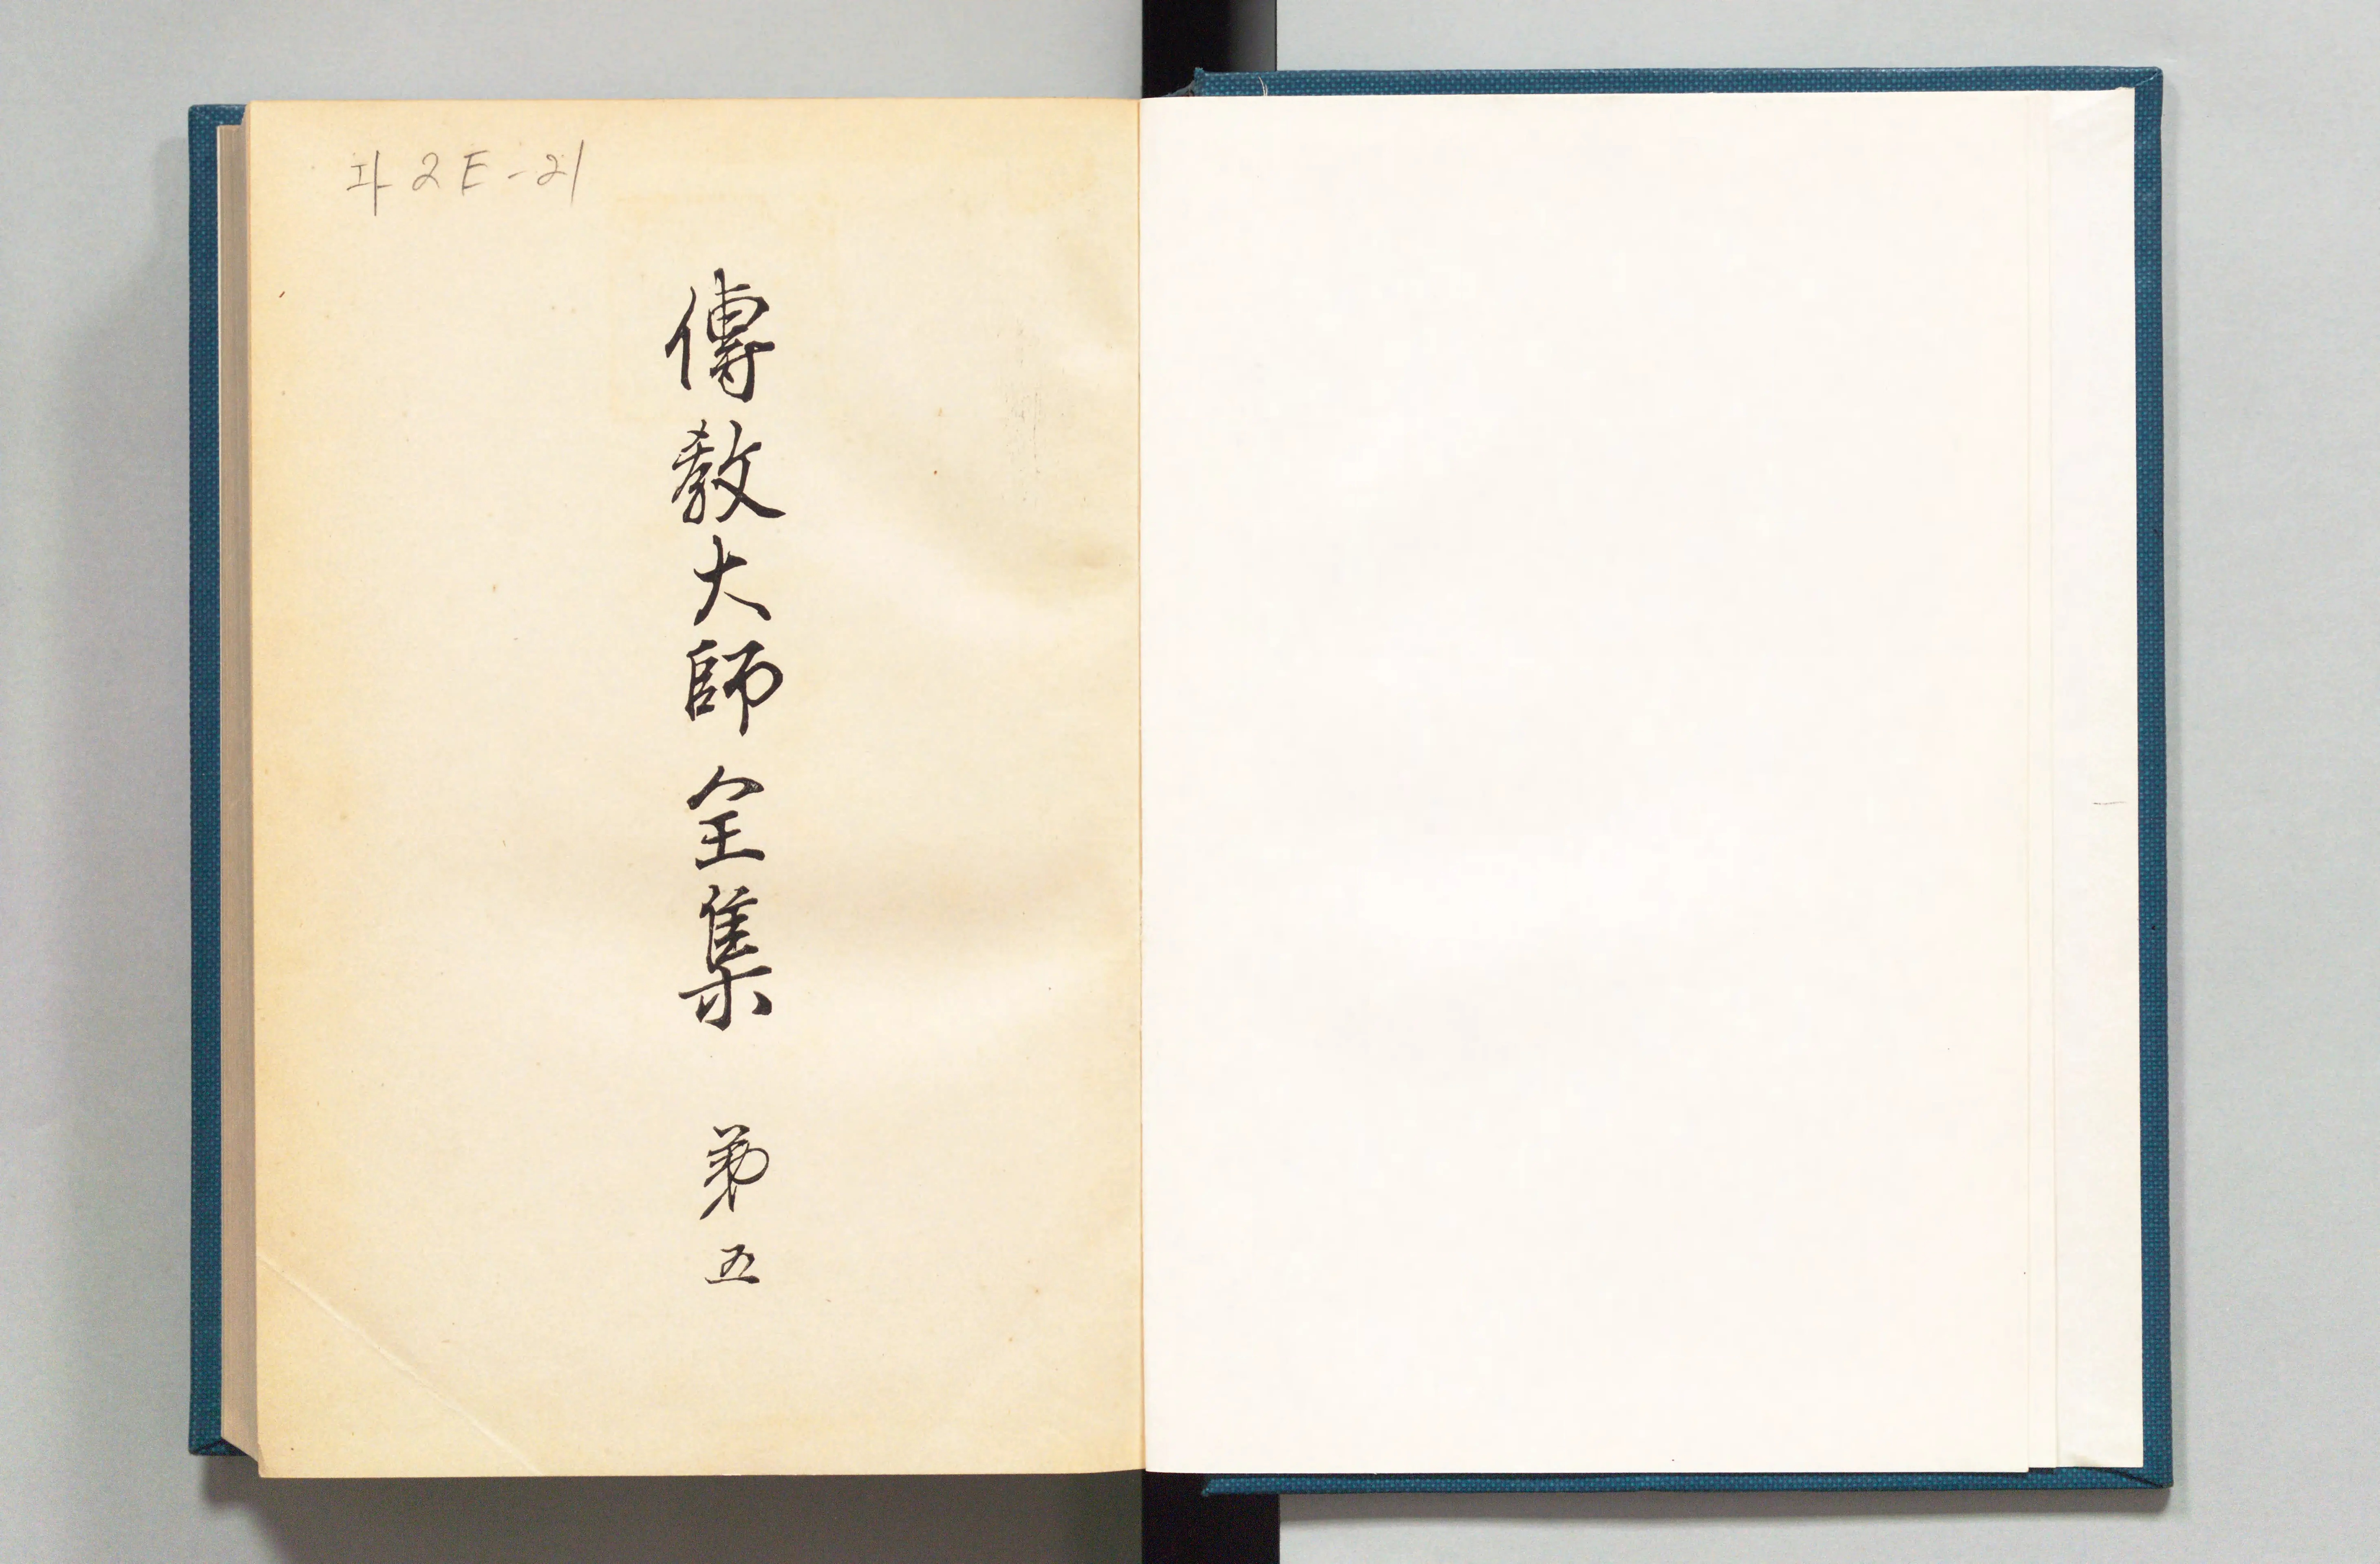 2E-21
傳教大師全集 第五